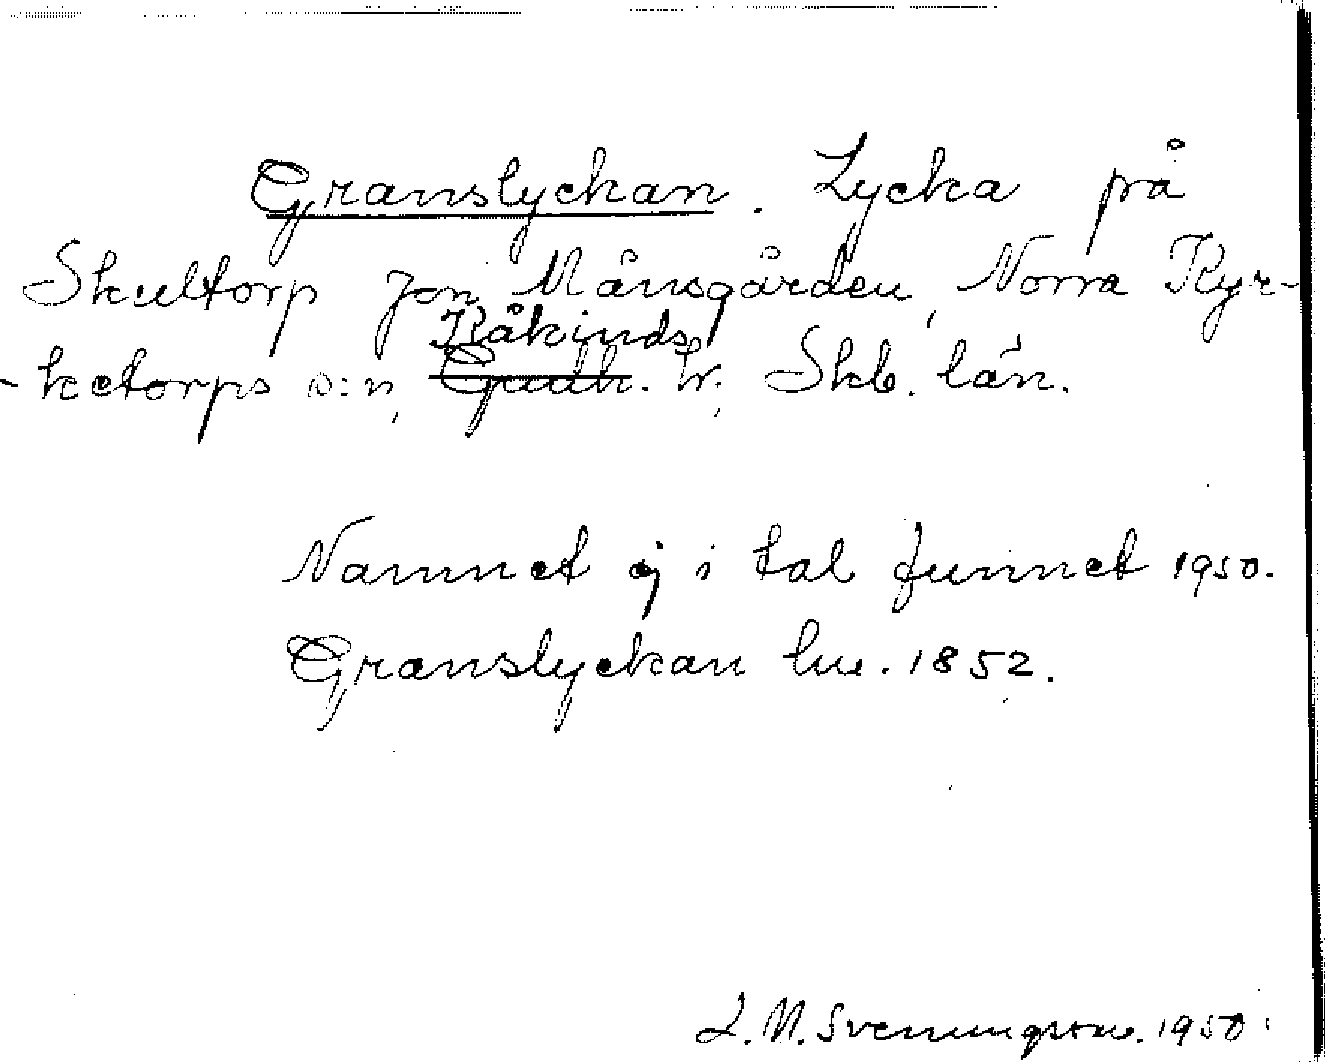 Granslyckan. Lycka på
Skultorp Jon Månsgården, Norra Kyr-
Kåkinds
-ketorps s:n, Gudh. hr. Skb. län.
Namnet ej i tal funnet 1950.
Granslyckan lm. 1852.
L. M. Svenungsson. 1950.